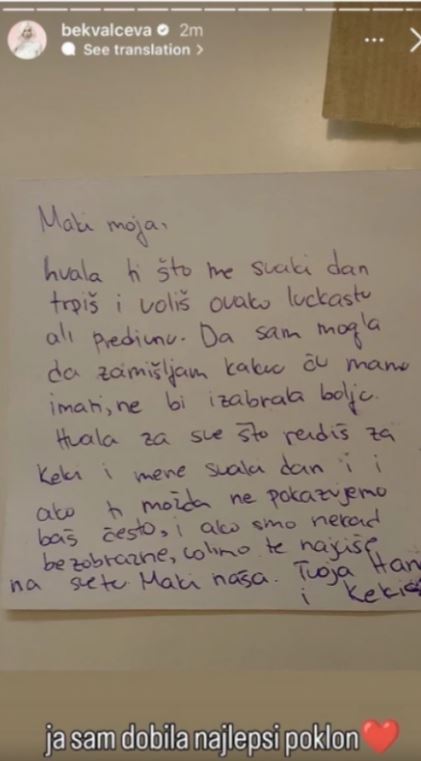 bekvalceva 2m
See translation >
Maki moja,
hvala ti što me svaki dan
trpiš i voliš ovako luckastu
ali predivnu. Da sam mogla
da zamišljam kakvu ću mamu
imati, ne bi izabrala bolje.
Hvala za sve što radiš za
Keki i mene svaki dan i i
ako ti možda ne pokazujemo
baš često, i ako smo nekad
bezobrazne, volimo te najviše
na svetu Maki naša. Tvoja Han
i Kekic
ja sam dobila najlepsi poklon❤️